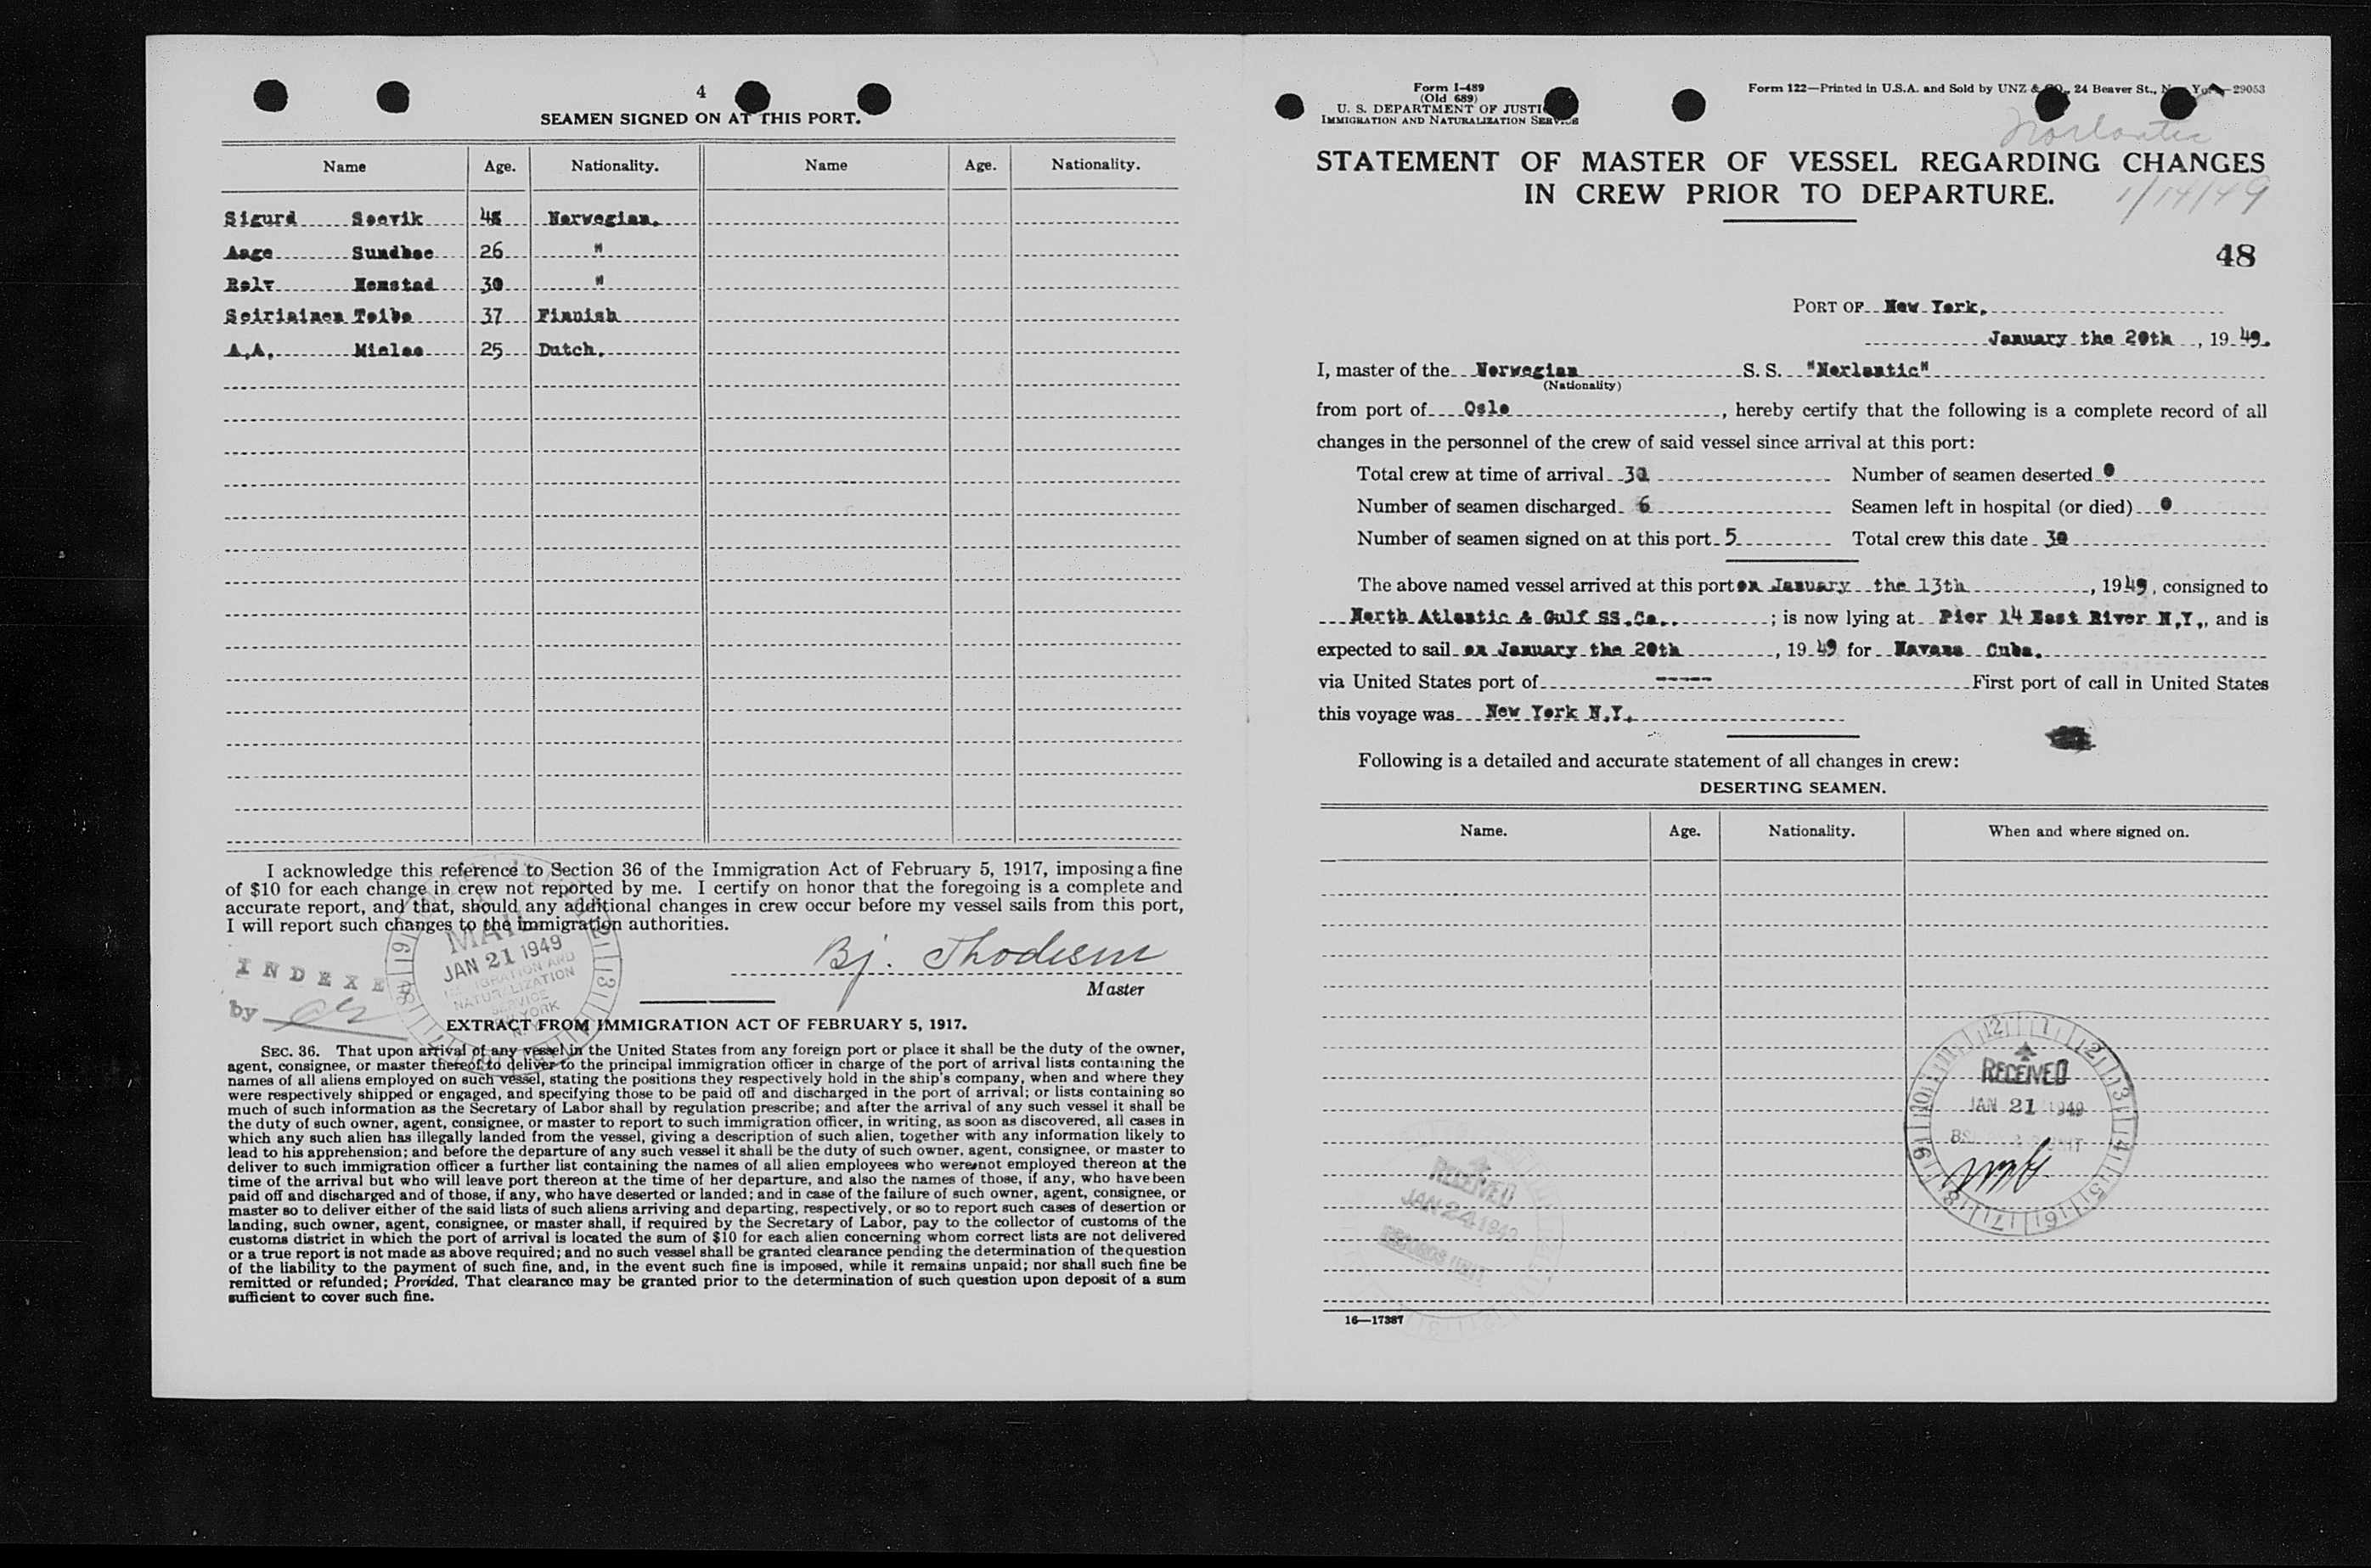 4
SEAMEN SIGNED ON AT THIS PORT.
Name Age. Nationality. Name Age. Nationality.
Sigurd Soevik Norwegian.
Aage Sundboe 26 "
Rolv Hemstad 30 "
Soiriainen Toibo 37 Finnish
A.A. Mielao 25 Dutch.
I acknowledge this reference to Section 36 of the Immigration Act of February 5, 1917, imposing a fine
of $10 for each change in crew not reported by me. I certify on honor that the foregoing is a complete and
accurate report, and that, should any additional changes in crew occur before my vessel sails from this port,
I will report such changes to the immigration authorities.
MAIL
JAN 21 1949
IMMIGRATION AND
NATURALIZATION
SERVICE
NEW YORK
N.Y.
INDEXE
by
Bj. Thodesen
Master
EXTRACT FROM IMMIGRATION ACT OF FEBRUARY 5, 1917.
SEC. 36. That upon arrival of any vessel in the United States from any foreign port or place it shall be the duty of the owner,
agent, consignee, or master thereof to deliver to the principal immigration officer in charge of the port of arrival lists containing the
names of all aliens employed on such vessel, stating the positions they respectively hold in the ship's company, when and where they
were respectively shipped or engaged, and specifying those to be paid off and discharged in the port of arrival; or lists containing so
much of such information as the Secretary of Labor shall by regulation prescribe; and after the arrival of any such vessel it shall be
the duty of such owner, agent, consignee, or master to report to such immigration officer, in writing, as soon as discovered, all cases in
which any such alien has illegally landed from the vessel, giving a description of such alien, together with any information likely to
lead to his apprehension; and before the departure of any such vessel it shall be the duty of such owner, agent, consignee, or master to
deliver to such immigration officer a further list containing the names of all alien employees who were not employed thereon at the
time of the arrival but who will leave port thereon at the time of her departure, and also the names of those, if any, who have been
paid off and discharged and of those, if any, who have deserted or landed; and in case of the failure of such owner, agent, consignee, or
master so to deliver either of the said lists of such aliens arriving and departing, respectively, or so to report such cases of desertion or
landing, such owner, agent, consignee, or master shall, if required by the Secretary of Labor, pay to the collector of customs of the
customs district in which the port of arrival is located the sum of $10 for each alien concerning whom correct lists are not delivered
or a true report is not made as above required; and no such vessel shall be granted clearance pending the determination of the question
of the liability to the payment of such fine, and, in the event such fine is imposed, while it remains unpaid; nor shall such fine be
remitted or refunded; Provided, That clearance may be granted prior to the determination of such question upon deposit of a sum
sufficient to cover such fine.
Form I-489
(Old 689)
U. S. DEPARTMENT OF JUSTI
IMMIGRATION AND NATURALIZATION SERVICE
Form 122—Printed in U.S.A. and Sold by UNZ & CO., 24 Beaver St., New York—29053
Norlantic
STATEMENT OF MASTER OF VESSEL REGARDING CHANGES
IN CREW PRIOR TO DEPARTURE.
1/14/49
48
PORT OF New York.
January the 20th, 19 49.
I, master of the Norwegian S. S. "Norlantic"
(Nationality)
from port of Oslo, hereby certify that the following is a complete record of all
changes in the personnel of the crew of said vessel since arrival at this port:
Total crew at time of arrival 31 Number of seamen deserted 0
Number of seamen discharged 6 Seamen left in hospital (or died) 0
Number of seamen signed on at this port 5 Total crew this date 30
The above named vessel arrived at this port on January the 13th, 1949, consigned to
North Atlantic & Gulf SS.Co..; is now lying at Pier 14 East River N.Y., and is
expected to sail on January the 20th, 19 49 for Havana Cuba.
via United States port of ----- First port of call in United States
this voyage was New York N.Y.
Following is a detailed and accurate statement of all changes in crew:
DESERTING SEAMEN.
Name. Age. Nationality. When and where signed on.
RECEIVED
JAN 21 1949
RECEIVED
JAN 24 1949
RECORDS UNIT
16—17387